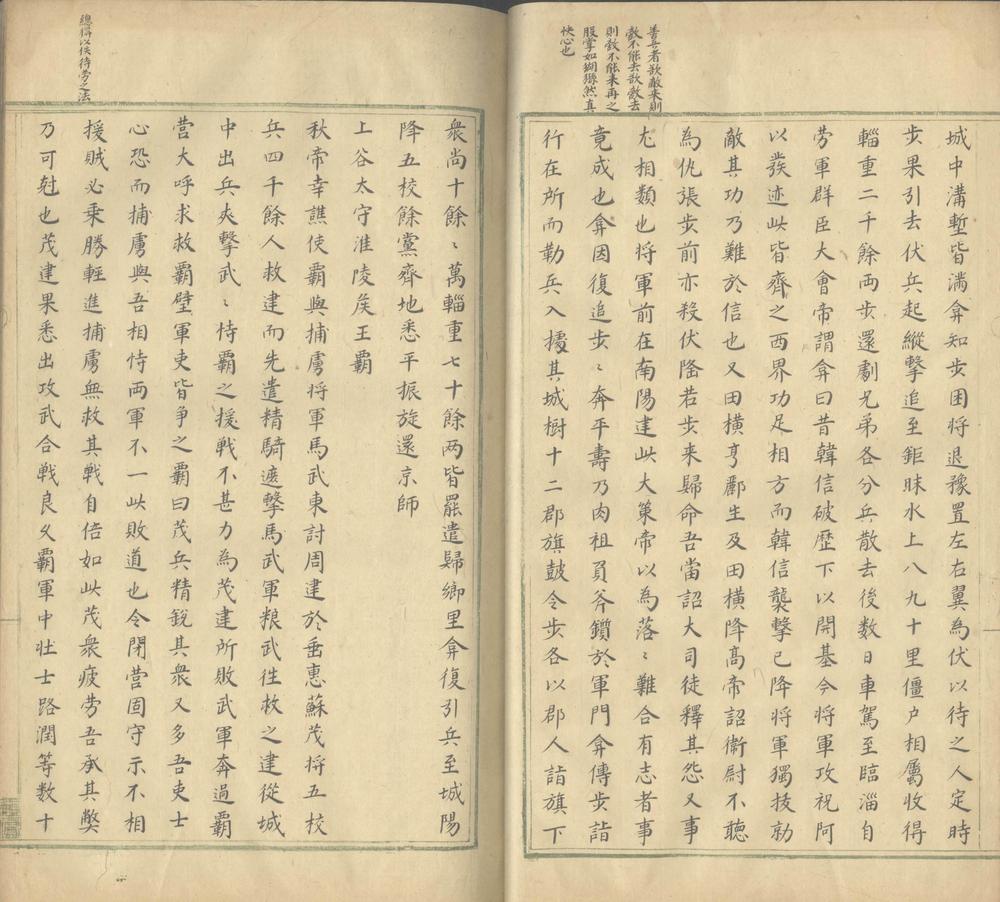 善兵者欲敵来則
敵不能去欲敵去
則敵不能来再之
股掌如猢猻然真
快心也
城中溝塹皆滿弇知步困将退豫置左右翼為伏以待之人定時
步果引去伏兵起縱擊追至鉅昧水上八九十里僵尸相屬收得
輜重二千餘両步還劇兄弟各分兵散去後数日車駕至臨淄自
劳軍群臣大會帝謂弇曰昔韓信破歷下以開基今将軍攻祝阿
以發迹此皆齊之西界功足相方而韓信襲擊已降将軍獨拔勍
敵其功乃難於信也又田横亨酈生及田横降高帝詔衛尉不聴
為仇張步前亦殺伏隆若步来歸命吾當詔大司徒釋其怨又事
尤相類也将軍前在南陽建此大策帝以為落〻難合有志者事
竟成也弇因復追步〻奔平壽乃肉袒負斧鑕於軍門弇傳步詣
行在所而勒兵入據其城樹十二郡旗鼓令步各以郡人詣旗下
總得以佚待劳之法
衆尚十餘〻萬輜重七十餘両皆罷遣歸鄉里弇復引兵至城陽
降五校餘黨齊地悉平振旋還京師
上谷太守淮陵侯王霸
秋帝幸譙使霸與捕虜将軍馬武東討周建於垂惠蘇茂将五校
兵四千餘人救建而先遣精騎遮擊馬武軍粮武徃救之建從城
中出兵夾擊武〻恃霸之援戦不甚力為茂建所敗武軍奔過霸
营大呼求救霸壁軍吏皆爭之霸曰茂兵精銳其衆又多吾吏士
心恐而捕虜與吾相恃両軍不一此敗道也今閉营固守示不相
援賊必乗勝輕進捕虜無救其戦自倍如此茂衆疲劳吾承其獘
乃可尅也茂建果悉出攻武合戦良久霸軍中壮士路潤等数十